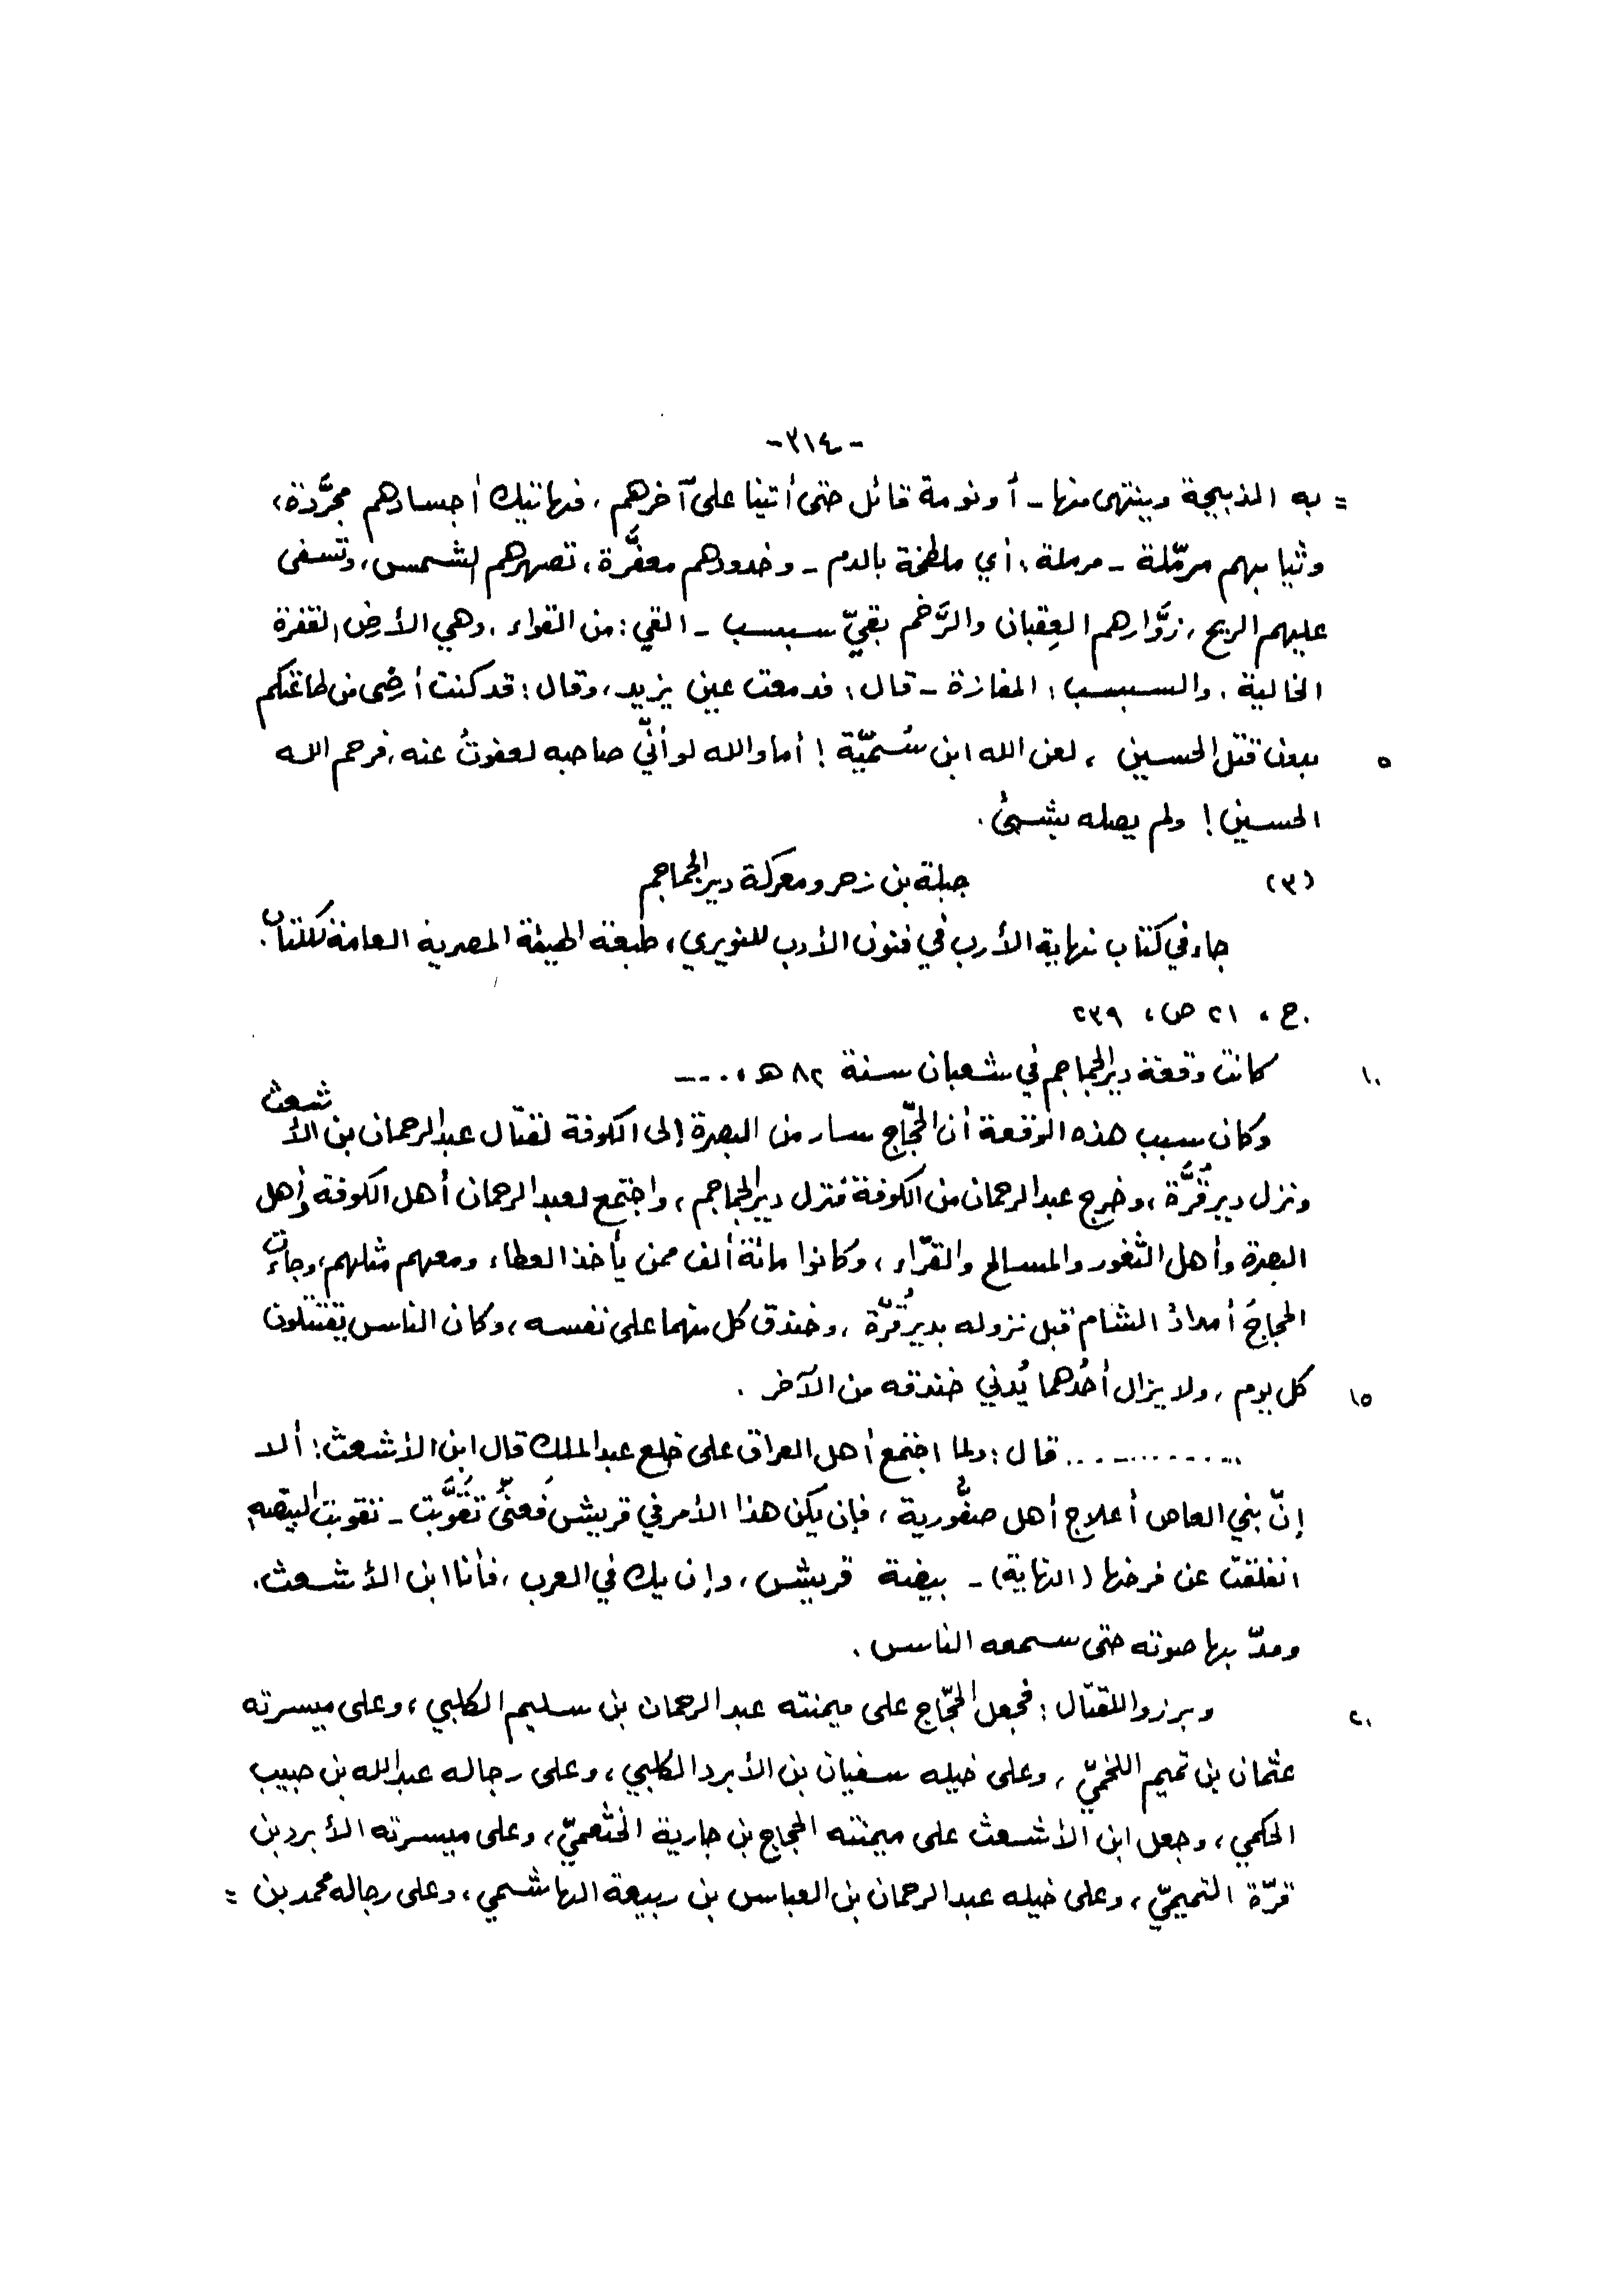 -٣١٤-
= به الذبيحة وينتهى منها - أو نومة قائل حتى أتينا على آخرهم، فهاتيك أجسادهم مجرَّدة،
وثيابهم مرمّلة - مرملة: أي ملطخة بالدم - وخدودهم معفَّرة، تصهرهم الشمس، وتسفى
عليهم الريح، زوَّارهم العِقبان والرَّخم بقيّ سبسب - القي: من القواء، وهي الأرض القفرة
الخالية، والسبسب: المفازة - قال: فدمعت عين يزيد، وقال: قد كنت أرضى من طاعتكم
٥ بدون قتل الحسين، لعن الله ابن سُميّة! أما والله لو أنّي صاحبه لعفوتُ عنه، فرحم الله
الحسين! ولم يصله بشيئ.
(٣) جبلة بن زحر ومعركة دير الجماجم
جاء في كتاب نهاية الأرب في فنون الأدب للنويري، طبعة الهيئة المصرية العامة للكتاب.
ج، ٢١ ص، ٢٣٩
١٠ كانت وقعة دير الجماجم في شعبان سنة ٨٢ هـ، ....
وكان سبب هذه الوقعة أن الحجّاج سار من البصرة إلى الكوفة لقتال عبد الرحمان بن الأشعث
ونزل دير قُرَّة، وخرج عبد الرحمان من الكوفة فنزل دير الجماجم، واجتمع لعبد الرحمان أهل الكوفة وأهل
البصرة وأهل الثغور والمسالح والقرّاء، وكانوا مائة ألف ممن يأخذ العطاء ومعهم مثلهم، وجاءت
الحجاجَ أمدادُ الشام قبل نزوله بدير قُرّة، وخندق كل منهما على نفسه، وكان الناس يقتتلون
١٥ كل يوم، ولا يزال أحدُهما يُدني خندقه من الآخر.
............. قال: ولما اجتمع أهل العراق على خلع عبد الملك قال ابن الأشعث: ألا
إنّ بني العاص أعلاج أهل صفُّورية، فإن يكن هذا الأمر في قريش فَعنّي تُقُوِّبت - تقوبت البيضة
انفلقت عن فرخها (النهاية) - بيضة قريش، وإن يك في العرب، فأنا ابن الأشعث.
ومدّ بها صوته حتى سمعه الناس.
٢٠ وبرزوا للقتال: فجعل الحجّاج على ميمنته عبد الرحمان بن سليم الكلبي، وعلى ميسرته
عثمان بن تميم اللخميّ، وعلى خيله سفيان بن الأبرد الكلبي، وعلى رجاله عبد الله بن حبيب
الحكمي، وجعل ابن الأشعث على ميمنته الحجاج بن جارية الخثعميّ، وعلى ميسرته الأبرد بن
قرّة التميميّ، وعلى خيله عبد الرحمان بن العباس بن ربيعة الهاشمي، وعلى رجاله محمد بن =